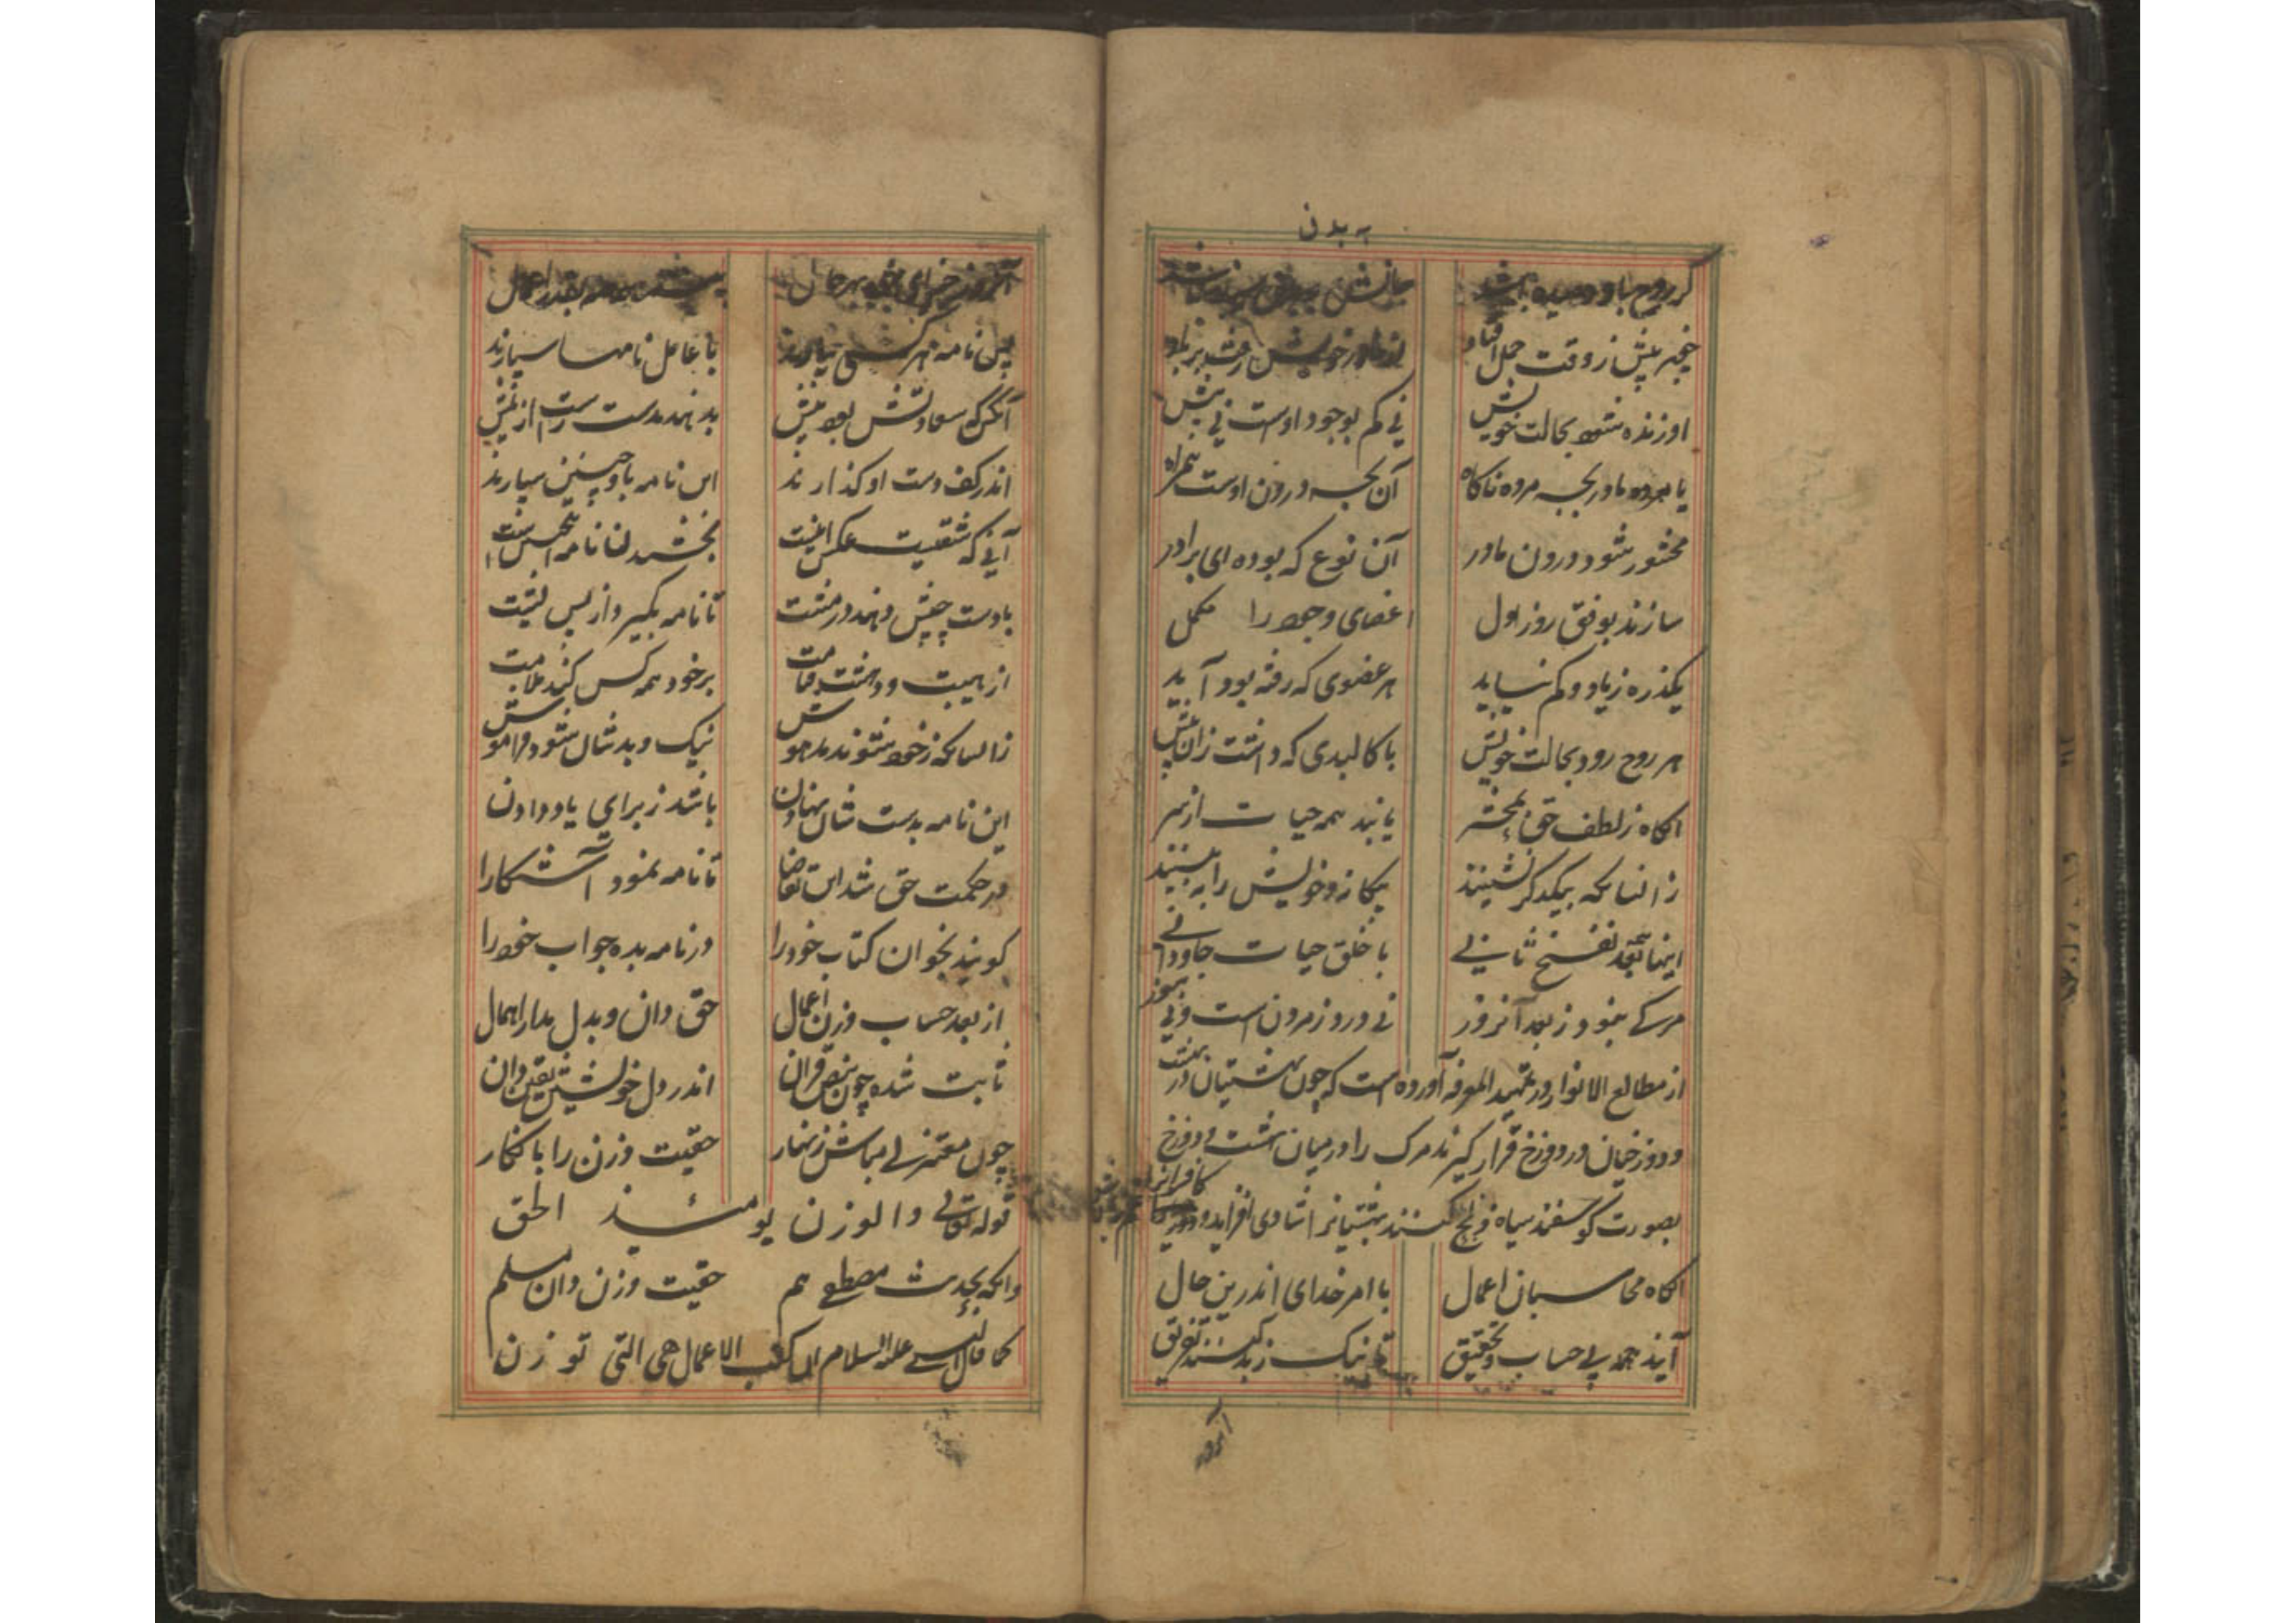 به بدن
گر روح باو دمیده باشد
از مادر خویش
او زنده شود بحالت خویش نی کم بوجود اوست نی بیش
یا مرده مادر بچه مرده ناکاه آن بچه درون اوست همراه
محشور شود درون مادر آن نوع که بوده ای برادر
سازند بوفق روز اول اعضای وجود را مکمل
یکذره زیاد و کم نیاید هر عضوی که رفته بود آید
هر روح رود بحالت خویش با کالبدی که داشت زان پیش
اکاه ز لطف حق بمحشر یابند همه حیات از سر
زانسانکه بیکدکر نشینند بیکانه و خویش را به بینند
اینها بعد نفخ ثانی با خلق حیات جاودانی
مرکی نبود ز بعد آنروز نی درو ز مردن است ونی سوز
از مطالع الانوار و در تمهید المعرفه آورده است که چون بهشتیان در بهشت
و دوزخیان در دوزخ قرار کیرند مرک را در میان بهشت و دوزخ
بصورت کوسفند سیاه ذبح کنند بهشتیانرا شادی افزاید و کافرانرا
اکاه محاسبان اعمال با امر خدای اندرین حال
آیند همه پی حساب و تحقیق تا نیک ز بد کنند تفریق
بقدر اعمال
پس نامه هر کسی بیارند با عامل نامها سپارند
آنکس که سعادتش بود پیش بدهند بدست راست از پیش
اندر کف دست او کذارند این نامه باو چنین سپارند
آنی که شقیست عکس اینست بخشیدن نامه اش چنین است
با دست چپش دهند در مشت تا نامه بکیرد از پس پشت
از هیبت و دهشت قیامت بر خود همه کس کند ملامت
زانسانکه ز خود شوند مدهوش نیک و بدشان شود فراموش
این نامه بدست شان نهادن باشد ز برای یاد دادن
در حکمت حق شد این تقاضا تا نامه نمود آشکارا
کویند بخوان کتاب خود را در نامه بده جواب خود را
از بعد حساب وزن اعمال حق دان و بدل مدار اهمال
ثابت شده چون بنص قران اندر دل خویشتن یقین دان
چون معتزلی مباش زنهار حقیت وزن را با نکار
قوله تعالی والوزن یومئذ الحق
وانکه بحدیث مصطفی هم حقیت وزن دان مسلم
کما قال النبی علیه السلام ان کتب الاعمال هی التی توزن